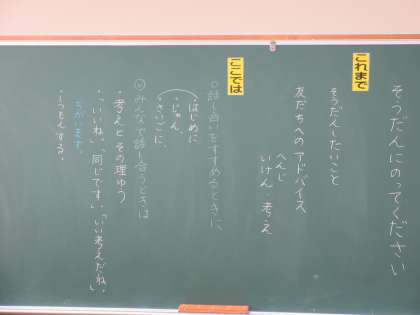 そうだんにのってください
これまで
そうだんしたいこと
友だちへのアドバイス
へんじ
いけん、考え
ここでは
○話し合いをすすめるときに、
・はじめに
・じゅん、
・さいごに、
みんなで話し合うときは
・考えとその理ゆう
・「いいね」「同じです」「いい考えだね」
ちがいます。
・しつもんする。